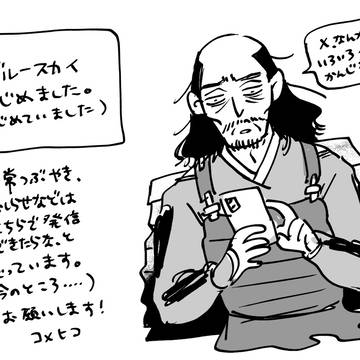 ブルースカイ
はじめました。
(はじめていました)
常つぶやき、
しらせなどは
こちらで発信
できたらな、と
思っています。
今のところ....)
お願いします!
コメヒコ
X、なんか
いろいろ
かんじ